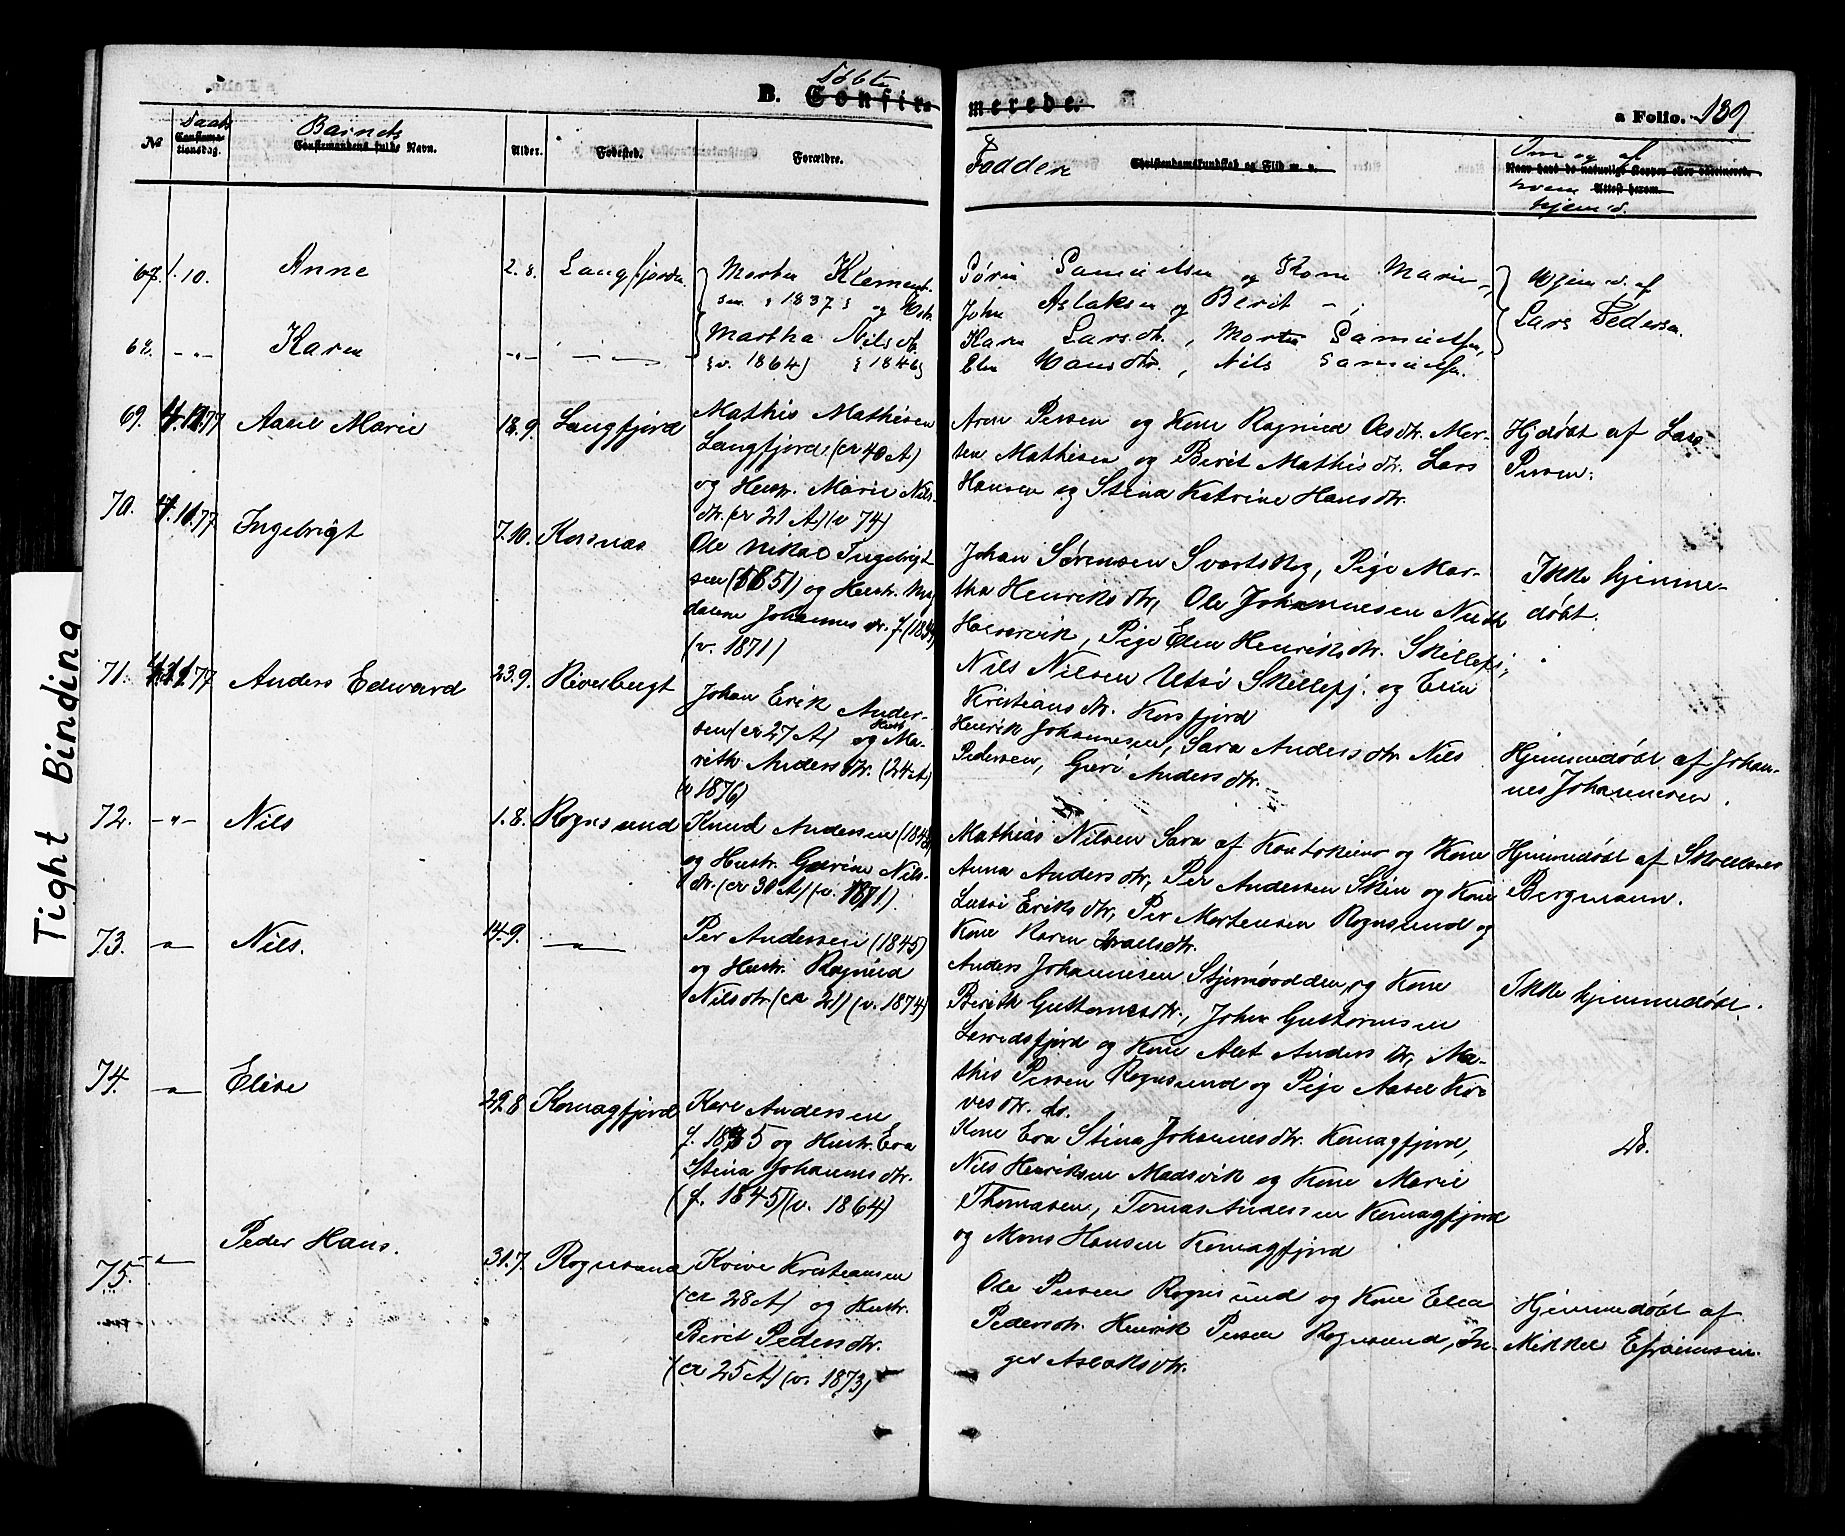 Døbte
B. Confirmerede.
a Folio. 139
№
Daab
Confirmationsdag.
Barnets
Confirmandens fulde Navn.
Alder.
Fødested.
Forældre.
Faddere
Christendomskundskab og Flid m. v.
Om og af
hvem
hjemd.
Attest herom.
67. 1.10. Anne 2.8. Langfjorden
Morten Klement-
sen 1837 og Hstr.
Martha Nilsdtr.
(v. 1864) 1846
Søren Samuelsen og Kone Marie,
John Aslaksen og Berit
Karen Larsdtr., Morten Samuelsen,
Elen Hansdtr., Nils Samuelsen.
Hjemd. af
Lars Pedersen.
68. -"- Karen -"-
69. Marie 18.9. Langfjord
Mathis Mathisen
Langfjord (cr 40 A)
og Hustr. Marie Nils-
dtr. (cr 21 A) (v 74)
Persen og Kone Ragnild Olsdtr. Mor-
ten Mathisen og Berit Mathisdtr. Lars
Hansen og Stina Katrine Hansdtr.
Hjdøbt af Lars
Persen.
70. Ingebrigt 7.10. Korsnæs
Ole Nikol Ingebrigt-
sen (1851) og Hustr. Mag
dalena Johannesdtr. f (1854)
(v. 1871)
Johan Sørensen Svartskog, Pige Mar-
tha Henriksdtr, Ole Johannesen
Pige Elen Henriksdtr. Skillefj.,
Nils Nilsen Utsi Skillefj. og Elen
Kristiansdtr. Korsfjord
Ikke hjemme-
døbt.
71. Anders Edward 23.9. Riverbugt
Johan Erik Ander-
sen (cr 27 A) og Hustr. Ma-
reth Andersdtr. (24 A)
(v 1876)
Henrik Johannesen, Sara Andersdtr. Nils
Pedersen, Guri Andersdtr.
Hjemmedøbt af Johan-
nes Johannesen.
72. -"- Nils 1.8. Rognsund
Knud Andersen (1848)
og Hustr. Gurine Nils-
dtr. (cr 30 A) (v. 1871).
Mathias Nilsen Sara af Kautokeino og Kone
Anna Andersdtr, Per Andersen Skin og Kone
Eriksdtr, Per Mortensen Rognsund og
Kone Karen Israelsdtr.
Hjemmedøbt af
Bergmann.
73. " Nils. 14.9. "
Per Andersen (1845)
og Hustr. Ragnild
Nilsdtr. (cr 21) (v. 1874)
Anders Johannesen Stjernøodden, og Kone
Berith Guttormsdtr., John Guttormsen
Lerredsfjord og Kone Alet Andersdtr, Ma-
this Persen Rognsund og Pige Aasel Kor-
vesdtr. do.
Ikke hjemmedøbt.
74. " Elise 29.8 Komagfjord
Kare Andersen
og Hustr. Eva
Stina Johannesdtr.
(f. 1845) (v. 1864)
Kone Eva Stina Johannesdtr. Komagfjord,
Nils Henriksen Madsvik og Kone Marie
Thomasen, Tomas Andersen Komagfjord
og Mons Hansen Komagfjord
do.
75. " Peder Hans. 30.7. Rognsund
Kristiansen
(cr 28 A) og Hustr.
Berit Pedersdtr.
(cr 25 A) (v. 1873)
Ole Persen Rognsund og Kone Elen
Pedersdtr. Henrik Persen Rognsund, In-
ger Aslaksdtr.
Hjemmedøbt af
Mikkel Efraimsen.
Tight Binding